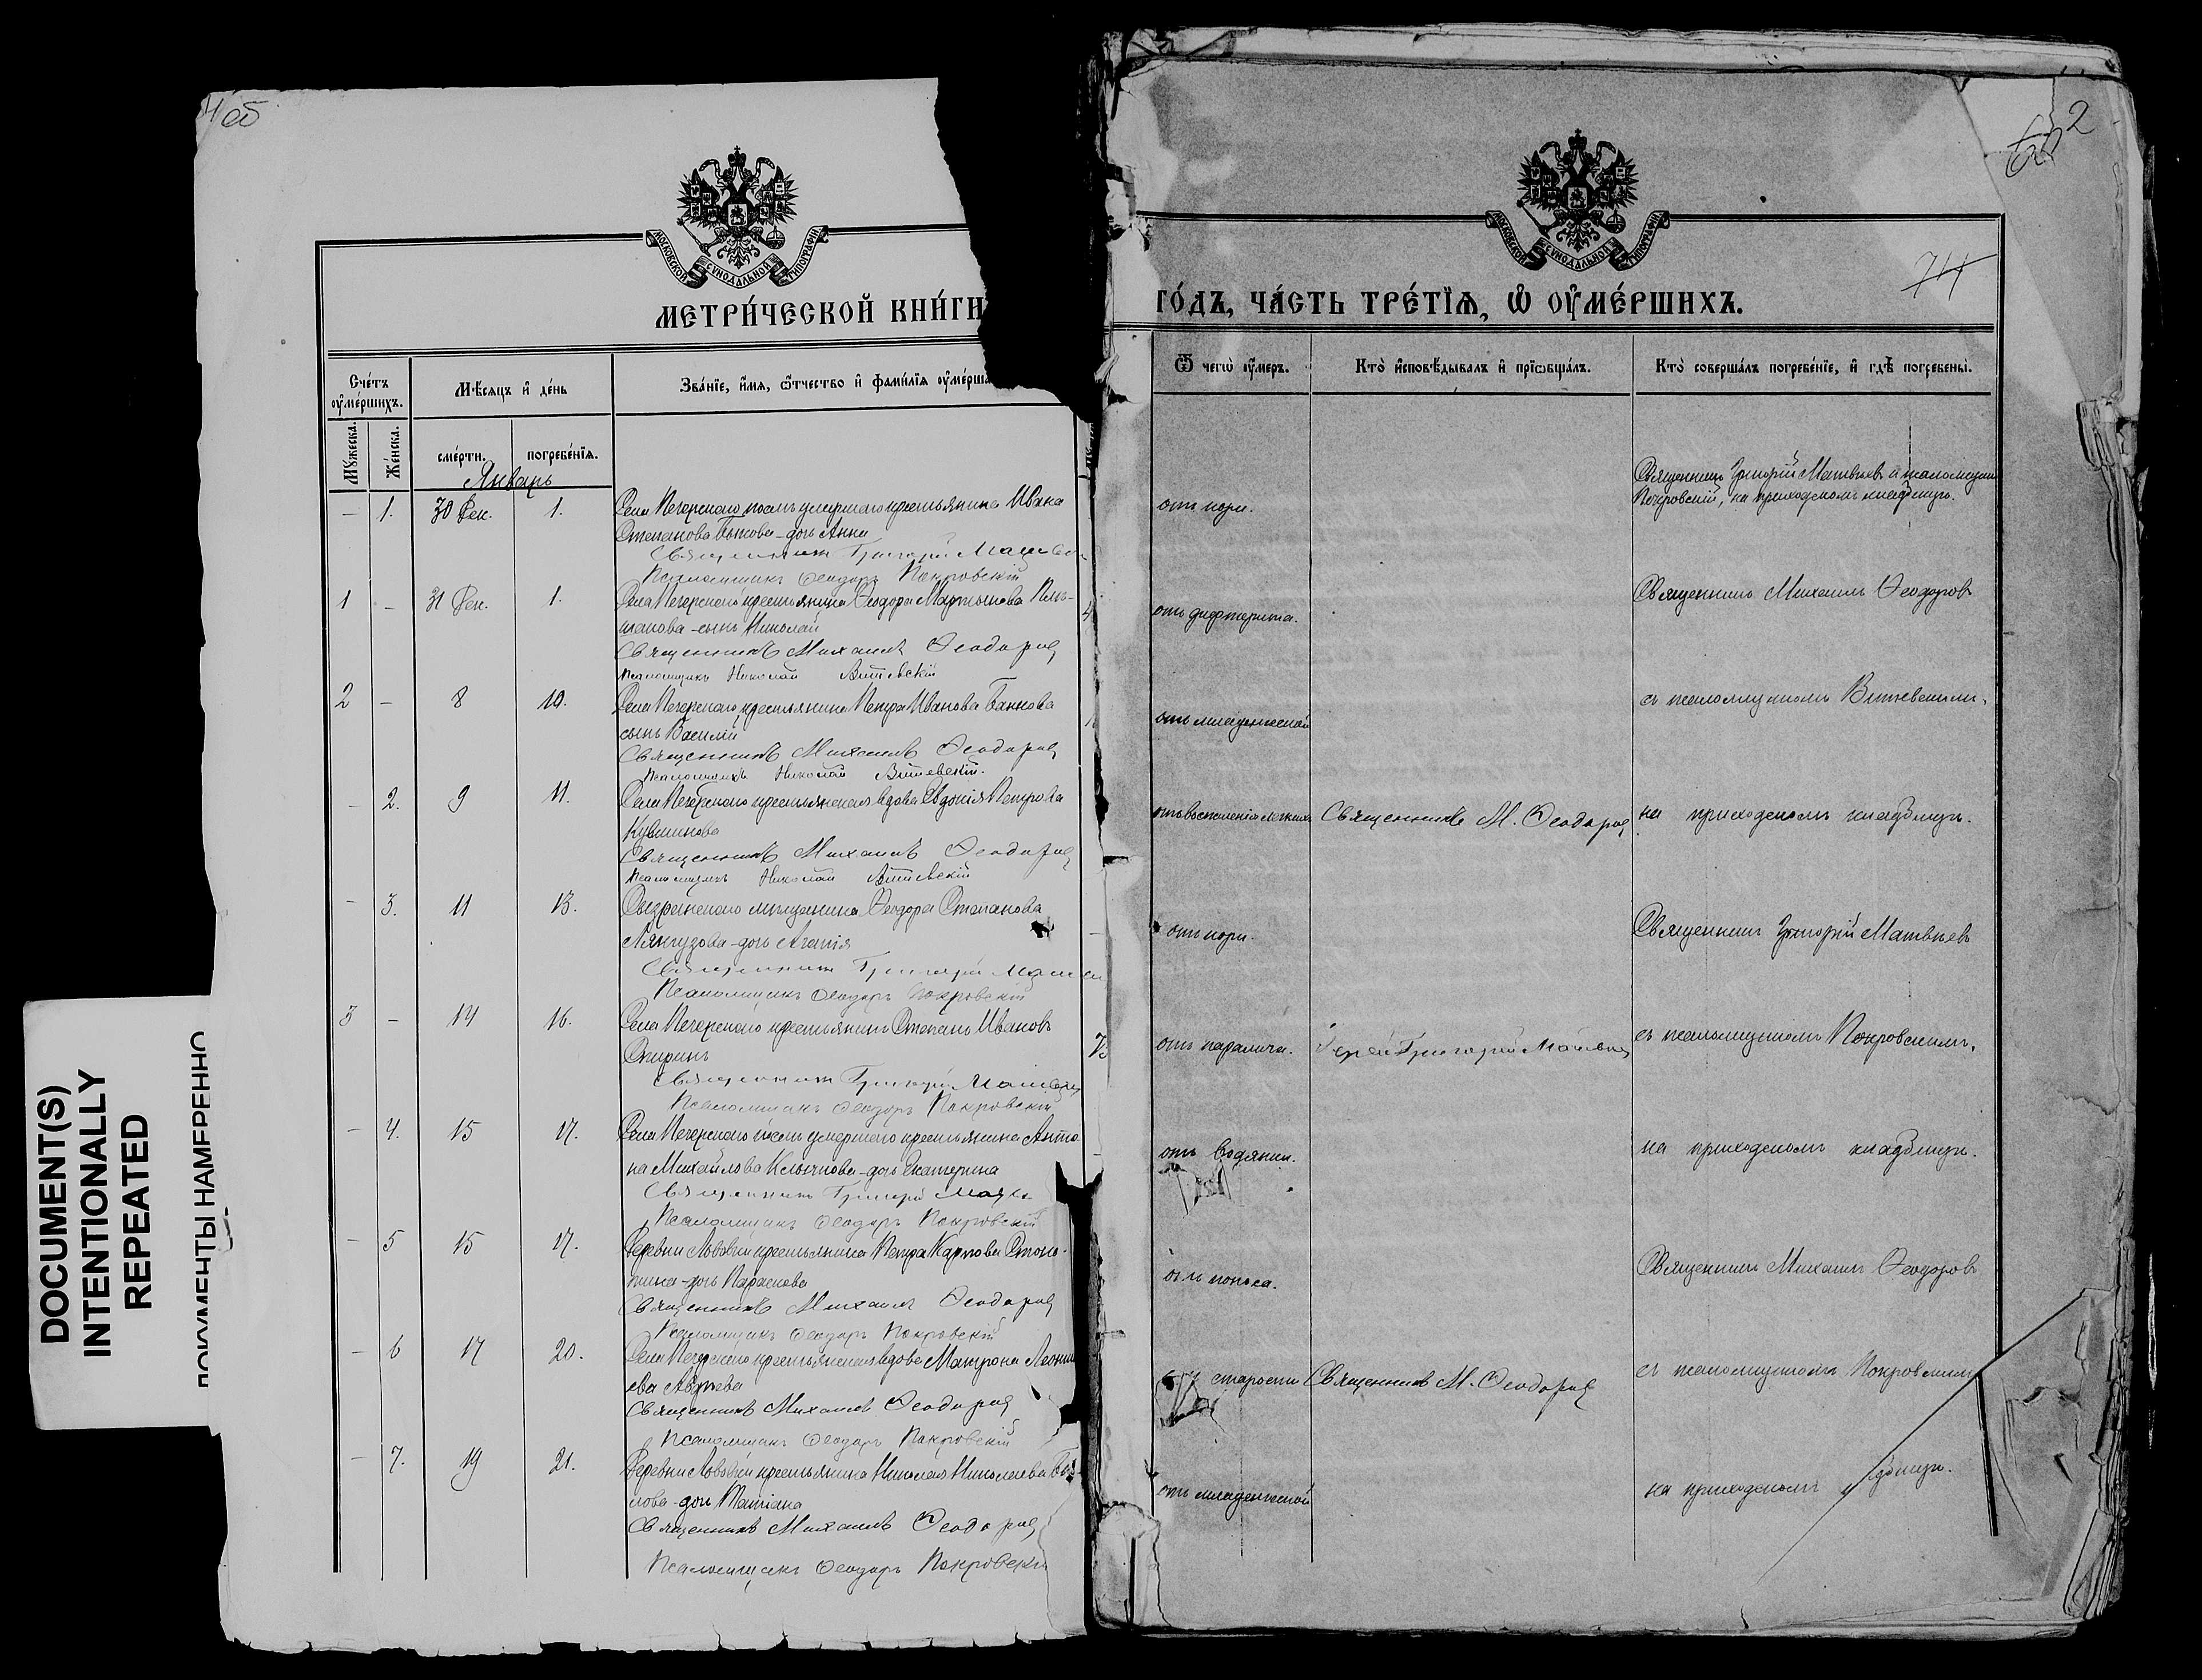 4 об
2
74
МОСКОВСКОЙ СѴНОДАЛЬНОЙ ТИПОГРАФІИ
МОСКОВСКОЙ СѴНОДАЛЬНОЙ ТИПОГРАФІИ
МЕТРИ́ЧЕСКОЙ КНИ́ГИ
ГО́ДЪ, ЧА́СТЬ ТРЕ́ТІѦ, Ѡ҆ ОУ҆МЕ́РШИХЪ.
Сче́тъ оу҆ме́ршихъ.
Мѣ́сяцъ и҆ де́нь
Зва́нїе, и҆́мя, ѻ҆́тчество и҆ фами́лїя оу҆ме́рша
Мꙋ́жеска.
Же́нска.
сме́рти.
погребе́нїя.
Ѿ чегѡ̀ оу҆́меръ.
Кто̀ и҆сповѣ́дывалъ и҆ прїѡбща́лъ.
Кто̀ соверша́лъ погребе́нїе, и҆ гдѣ̀ погребены̀.
Январь
— 1. 30 Дек. 1. Села Печерскаго послѣ умершаго крестьянина Ивана
Степанова дочь Анна
Священникъ Григорій
Псаломщикъ Ѳеодоръ Покровскій
отъ кори.
Священникъ Григорій Матвѣевъ и псаломщикъ
Покровскій, на приходскомъ кладбищѣ.
1 — 31 Дек. 1. Села Печерскаго крестьянина Ѳеодора Мартынова
сынъ Николай
Священникъ Михаилъ Ѳеодоровъ
Псаломщикъ Николай Витевскій
отъ дифтерита.
Священникъ Михаилъ Ѳеодоровъ
2 — 8 10. Села Печерскаго крестьянина Петра Иванова Банкова
сынъ Василій
Священникъ Михаилъ Ѳеодоровъ
Псаломщикъ Николай Витевскій.
отъ младенческой
съ псаломщикомъ Витевскимъ,
— 2. 9 11. Села Печерскаго крестьянская вдова Евдокія Петрова
Кувшинова
Священникъ Михаилъ Ѳеодоровъ
Псаломщикъ Николай Витевскій
отъ воспаленія легкихъ
Священникъ М. Ѳеодоровъ
на приходскомъ кладбищѣ.
— 3. 11 13. Сызранскаго мѣщанина Ѳеодора Степанова
Лянгузова - дочь Агапія
Священникъ Григорій
Псаломщикъ Ѳеодоръ Покровскій
отъ кори.
Священникъ Григорій Матвѣевъ
3 — 14 16. Села Печерскаго крестьянинъ Степанъ Ивановъ
Спиринъ
Священникъ Григорій
Псаломщикъ Ѳеодоръ Покровскій
отъ паралича.
Іерей Григорій Матвѣевъ
съ псаломщикомъ Покровскимъ,
— 4. 15 17. Села Печерскаго послѣ умершаго крестьянина Анто
на Михайлова Клычкова - дочь Екатерина
Священникъ Григорій
Псаломщикъ Ѳеодоръ Покровскій
отъ водянки.
на приходскомъ кладбищѣ.
— 5 15 17. Деревни крестьянина Петра Карпова
дочь Параскева
Священникъ Михаилъ Ѳеодоровъ
Псаломщикъ Ѳеодоръ Покровскій
отъ поноса.
Священникъ Михаилъ Ѳеодоровъ
— 6 17 20. Села Печерскаго крестьянская вдова Матрона Леонть
ева Авдѣева
Священникъ Михаилъ Ѳеодоровъ
Псаломщикъ Ѳеодоръ Покровскій
старости
Священникъ М. Ѳеодоровъ
съ псаломщикомъ Покровскимъ
— 7. 19 21. Деревни крестьянина Николая Николаева
дочь Татіана
Священникъ Михаилъ Ѳеодоровъ
Псаломщикъ Ѳеодоръ Покровскій
отъ младенческой
на приходскомъ кладбищѣ.
DOCUMENT(S)
INTENTIONALLY
REPEATED
ДОКУМЕНТЫ НАМЕРЕННО